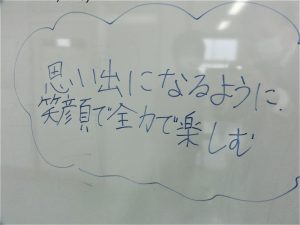 思い出になるように、
笑顔で全力で楽しむ